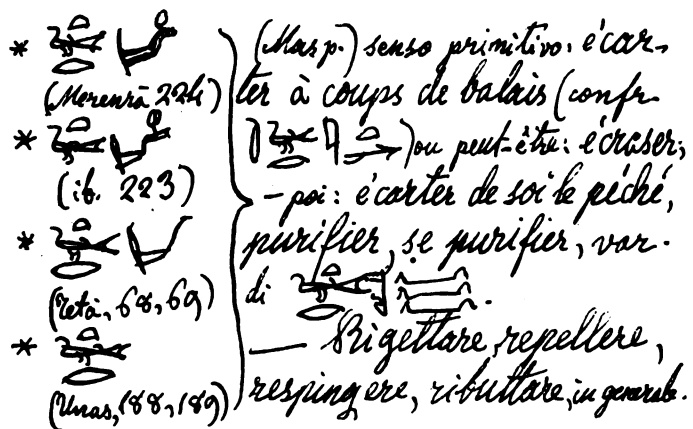 *
(Merenrā 224)
*
(ib. 223)
*
(Tetà, 68, 69)
*
(Unas, 188, 189)
(Masp.) senso primitivo: écar-
ter à coups de balais (confr.
) ou peut-être: écraser;
– poi: écarter de soi le péché,
purifier, se purifier, var.
di .
— Rigettare, repellere,
respingere, ributtare, in generale.